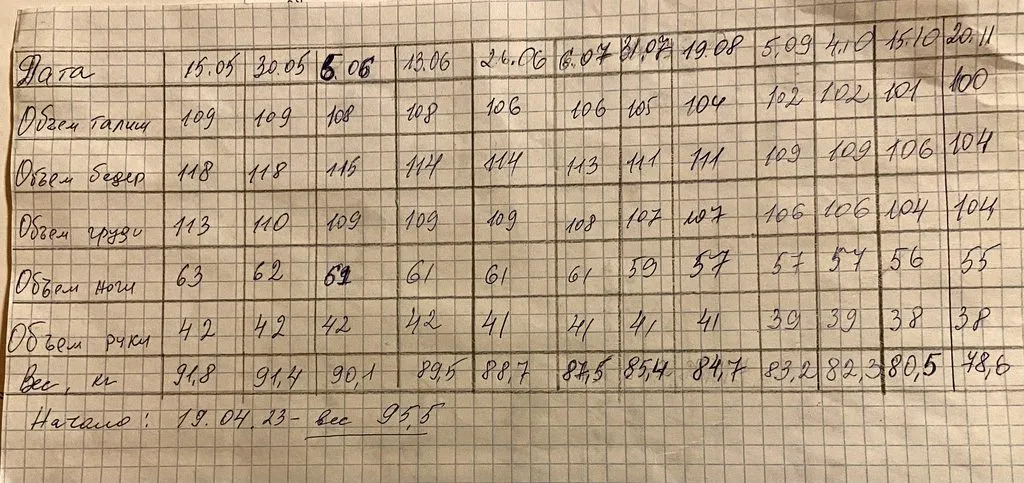 Дата 15.05 30.05 6.06 13.06 26.06 6.07 31.07 19.08 5.09 4.10 15.10 20.11
Объем талии 109 109 108 108 106 106 105 104 102 102 101 100
Объем бедер 118 118 115 114 114 113 111 111 109 109 106 104
Объем груди 113 110 109 109 109 108 107 107 106 106 104 104
Объем ноги 63 62 61 61 61 59 57 57 57 56 55
Объем руки 42 42 42 42 41 41 41 41 39 39 38 38
Вес, кг 91,8 91,4 90,1 89,5 88,7 87,5 85,4 84,7 83,2 82,3 80,5 78,6
Начало: 19.04.23- вес 95,5